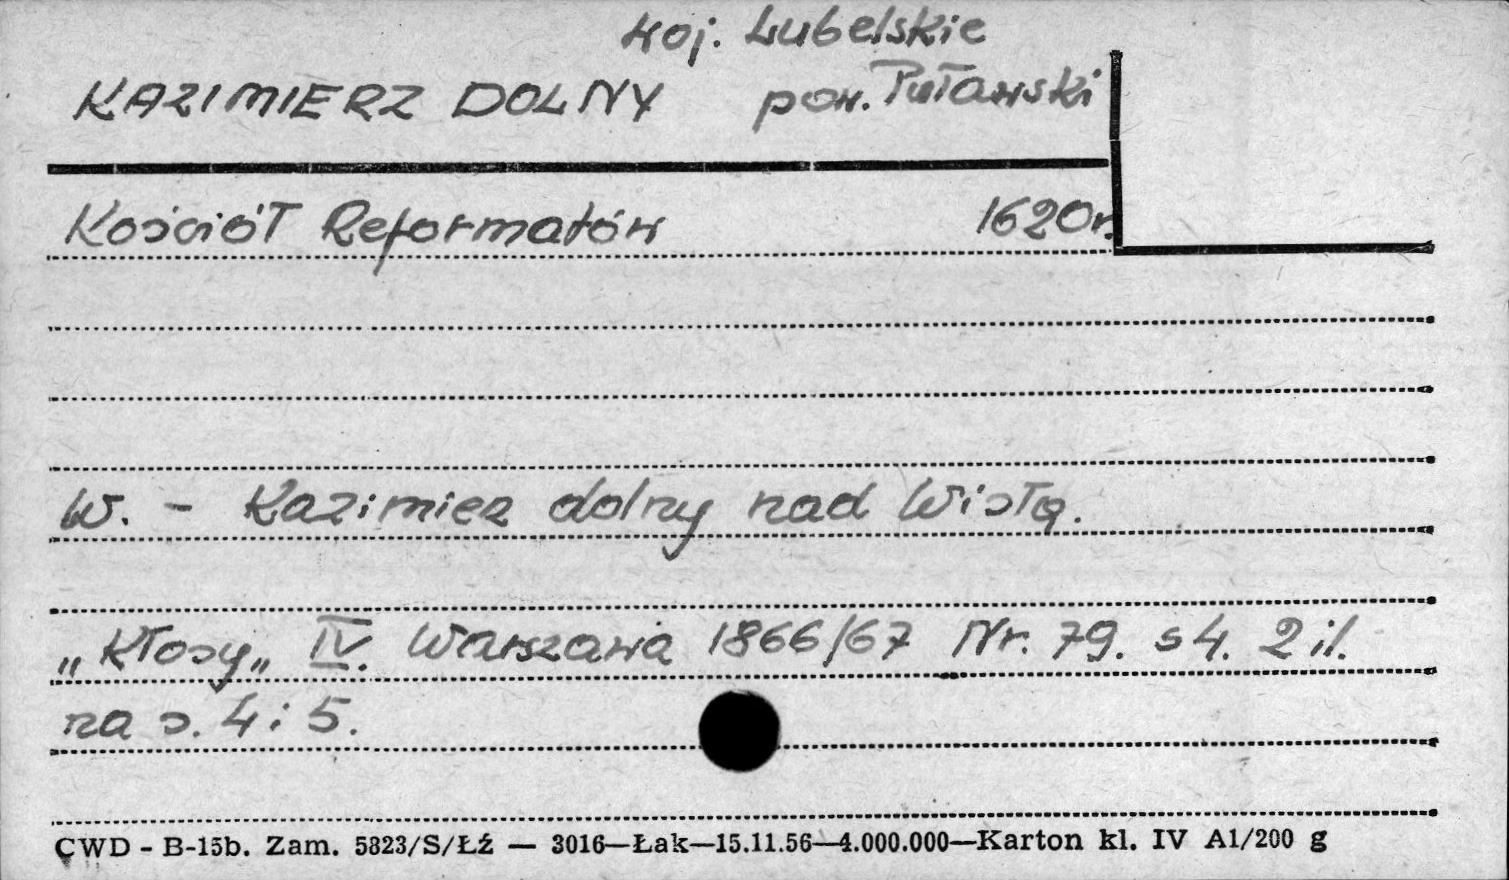 woj. Lubelskie
KAZIMIERZ DOLNY pow. Puławski
Kościół Reformatów 1620r.
W. - Kazimierz dolny nad Wisłą.
„Kłosy„ IV. Warszawa 1866/67 Nr. 79. s 4. 2 il.
na s. 4 i 5.
CWD - B-15b. Zam. 5823/S/Łź — 3016—Łak—15.11.56—4.000.000—Karton kl. IV A1/200 g